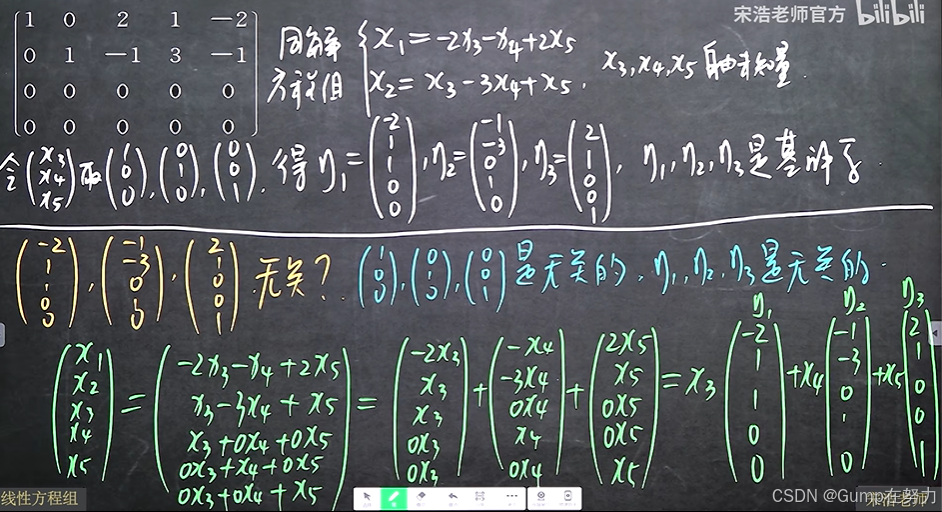 宋浩老师官方 bilibili
1 0 2 1 -2
0 1 -1 3 -1
0 0 0 0 0
0 0 0 0 0
同解方程组 { x₁=-2x₃-x₄+2x₅
x₂=x₃-3x₄+x₅. x₃,x₄,x₅自由未知量.
令(x₃ x₄ x₅)取(1 0 0),(0 1 0),(0 0 1). 得η₁=(-2 1 1 0 0),η₂=(-1 -3 0 1 0),η₃=(2 1 0 0 1), η₁,η₂,η₃是基础系.
(-2 1 1 0 0),(-1 -3 0 1 0),(2 1 0 0 1)无关? (1 0 0),(0 1 0),(0 0 1)是无关的,η₁,η₂,η₃是无关的.
η₁ η₂ η₃
(x₁ x₂ x₃ x₄ x₅)=
-2x₃-x₄+2x₅
x₃-3x₄+x₅
x₃+0x₄+0x₅
0x₃+x₄+0x₅
0x₃+0x₄+x₅
=(-2x₃ x₃ x₃ 0x₃ 0x₃)+(-x₄ -3x₄ 0x₄ x₄ 0x₄)+(2x₅ x₅ 0x₅ 0x₅ x₅)=x₃(-2 1 1 0 0)+x₄(-1 -3 0 1 0)+x₅(2 1 0 0 1)
线性方程组
CSDN @Gump在努力